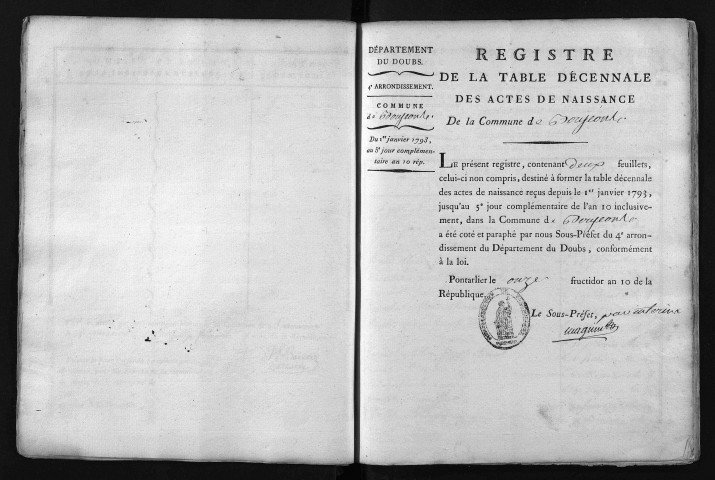 DÉPARTEMENT
DU DOUBS.
4e ARRONDISSEMENT.
COMMUNE
de
Du 1er janvier 1793,
au 5e jour complémen-
taire an 10 rép.
REGISTRE
DE LA TABLE DÉCENNALE
DES ACTES DE NAISSANCE
De la Commune de
LE présent registre, contenant deux feuillets,
celui-ci non compris, destiné à former la table décennale
des actes de naissance reçus depuis le 1er janvier 1793,
jusqu'au 5e jour complémentaire de l'an 10 inclusive-
ment, dans la Commune de
a été coté et paraphé par nous Sous-Préfet du 4e arron-
dissement du Département du Doubs, conformément
à la loi.
Pontarlier le onze fructidor an 10 de la
République.
Le Sous-Préfet,